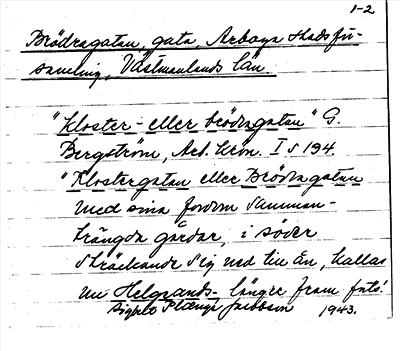 1-2
Brödragatan, gata, Arboga stadsför-
samling, Västmanlands län
"Kloster- eller brödragatan" G.
Bergström, Arb. krön. I s 194.
"Klostergatan eller Brödragatan
med sina fordom samman-
trängda gårdar, i söder
sträckande sig ned till ån, kallas
nu Helgeands- längre fram
1943.